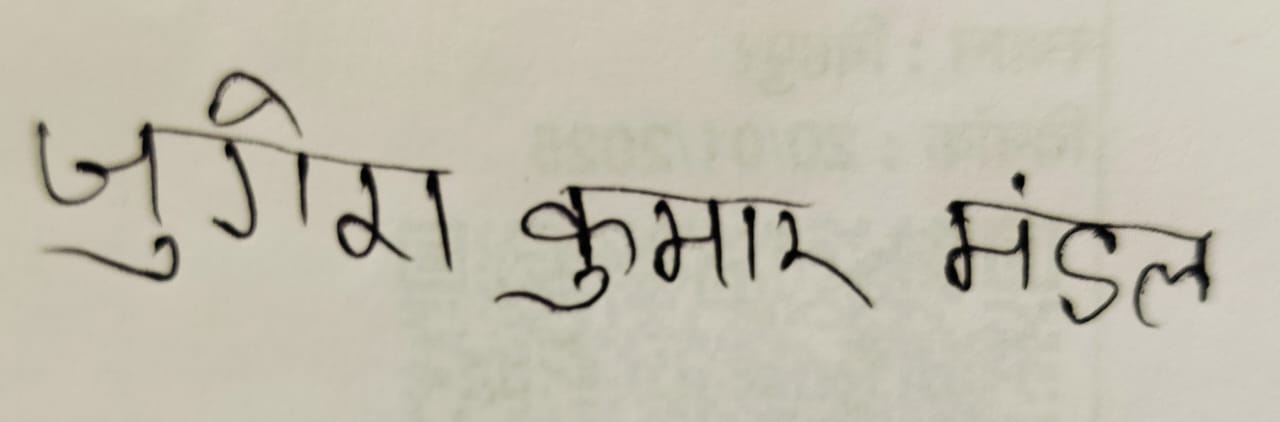 जुगेश कुमार मंडल